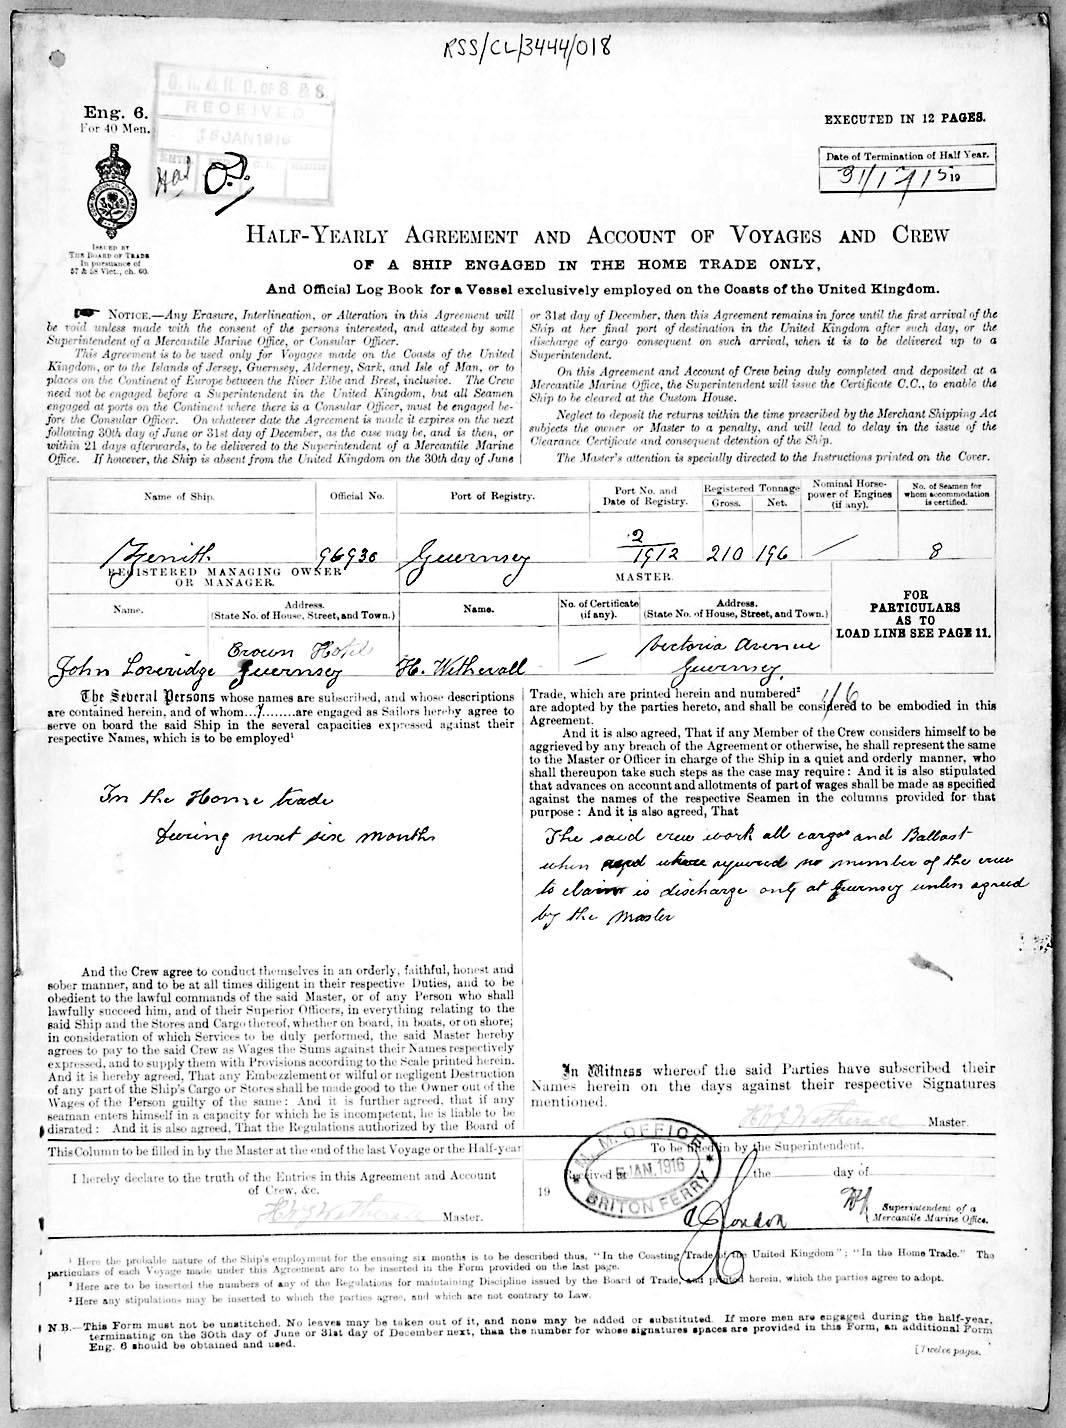 RSS/CL/3444/018
Eng. 6.
For 40 Men.
RECEIVED
JAN 1916
EXECUTED IN 12 PAGES.
Date of Termination of Half Year.
31/12/15 19
ISSUED BY
THE BOARD OF TRADE
In pursuance of
57 & 58 Vict., ch. 60.
HALF-YEARLY AGREEMENT AND ACCOUNT OF VOYAGES AND CREW
OF A SHIP ENGAGED IN THE HOME TRADE ONLY,
And Official Log Book for a Vessel exclusively employed on the Coasts of the United Kingdom.
NOTICE.—Any Erasure, Interlineation, or Alteration in this Agreement will
be void unless made with the consent of the persons interested, and attested by some
Superintendent of a Mercantile Marine Office, or Consular Officer.
This Agreement is to be used only for Voyages made on the Coasts of the United
Kingdom, or to the Islands of Jersey, Guernsey, Alderney, Sark, and Isle of Man, or to
places on the Continent of Europe between the River Elbe and Brest, inclusive. The Crew
need not be engaged before a Superintendent in the United Kingdom, but all Seamen
engaged at ports on the Continent where there is a Consular Officer, must be engaged be-
fore the Consular Officer. On whatever date the Agreement is made it expires on the next
following 30th day of June or 31st day of December, as the case may be, and is then, or
within 21 days afterwards, to be delivered to the Superintendent of a Mercantile Marine
Office. If however, the Ship is absent from the United Kingdom on the 30th day of June
or 31st day of December, then this Agreement remains in force until the first arrival of the
Ship at her final port of destination in the United Kingdom after such day, or the
discharge of cargo consequent on such arrival, when it is to be delivered up to a
Superintendent.
On this Agreement and Account of Crew being duly completed and deposited at a
Mercantile Marine Office, the Superintendent will issue the Certificate C.C., to enable the
Ship to be cleared at the Custom House.
Neglect to deposit the returns within the time prescribed by the Merchant Shipping Act
subjects the owner or Master to a penalty, and will lead to delay in the issue of the
Clearance Certificate and consequent detention of the Ship.
The Master's attention is specially directed to the Instructions printed on the Cover.
Name of Ship. Official No. Port of Registry. Port No. and Date of Registry. Registered Tonnage Gross. Net. Nominal Horse-power of Engines (if any). No. of Seamen for whom accommodation is certified.
Zenith 96930 Guernsey 2/1912 210 196 8
REGISTERED MANAGING OWNER
OR MANAGER.
MASTER.
Name. Address. (State No. of House, Street, and Town.) Name. No. of Certificate (if any). Address. (State No. of House, Street, and Town.)
FOR
PARTICULARS
AS TO
LOAD LINE SEE PAGE 11.
John Loveridge Crown Hotel Guernsey H. Wetherall Victoria Avenue Guernsey.
The Several Persons whose names are subscribed, and whose descriptions
are contained herein, and of whom...7........are engaged as Sailors hereby agree to
serve on board the said Ship in the several capacities expressed against their
respective Names, which is to be employed¹
In the Home trade
During next six months
And the Crew agree to conduct themselves in an orderly, faithful, honest and
sober manner, and to be at all times diligent in their respective Duties, and to be
obedient to the lawful commands of the said Master, or of any Person who shall
lawfully succeed him, and of their Superior Officers, in everything relating to the
said Ship and the Stores and Cargo thereof, whether on board, in boats, or on shore;
in consideration of which Services to be duly performed, the said Master hereby
agrees to pay to the said Crew as Wages the Sums against their Names respectively
expressed, and to supply them with Provisions according to the Scale printed herein.
And it is hereby agreed, That any Embezzlement or wilful or negligent Destruction
of any part of the Ship's Cargo or Stores shall be made good to the Owner out of the
Wages of the Person guilty of the same: And it is further agreed, that if any
seaman enters himself in a capacity for which he is incompetent, he is liable to be
disrated: And it is also agreed, That the Regulations authorized by the Board of
Trade, which are printed herein and numbered²
are adopted by the parties hereto, and shall be considered to be embodied in this
Agreement.
And it is also agreed, That if any Member of the Crew considers himself to be
aggrieved by any breach of the Agreement or otherwise, he shall represent the same
to the Master or Officer in charge of the Ship in a quiet and orderly manner, who
shall thereupon take such steps as the case may require: And it is also stipulated
that advances on account and allotments of part of wages shall be made as specified
against the names of the respective Seamen in the columns provided for that
purpose: And it is also agreed, That
The said crew work all cargos and Ballast
when where required no member of the crew
to claim is discharge only at Guernsey unless agreed
by the Master
In Witness whereof the said Parties have subscribed their
Names herein on the days against their respective Signatures
mentioned.
Master.
This Column to be filled in by the Master at the end of the last Voyage or the Half-year
I hereby declare to the truth of the Entries in this Agreement and Account
of Crew, &c.
Master.
To be filled in by the Superintendent.
Received at the day of
19
M. M. OFFICE
5 JAN. 1916
BRITON FERRY
Superintendent of a
Mercantile Marine Office.
¹ Here the probable nature of the Ship's employment for the ensuing six months is to be described thus, "In the Coasting Trade of the United Kingdom"; "In the Home Trade." The
particulars of each Voyage made under this Agreement are to be inserted in the Form provided on the last page.
² Here are to be inserted the numbers of any of the Regulations for maintaining Discipline issued by the Board of Trade, and printed herein, which the parties agree to adopt.
³ Here any stipulations may be inserted to which the parties agree, and which are not contrary to Law.
N.B.—This Form must not be unstitched. No leaves may be taken out of it, and none may be added or substituted. If more men are engaged during the half-year,
terminating on the 30th day of June or 31st day of December next, than the number for whose signatures spaces are provided in this Form, an additional Form
Eng. 6 should be obtained and used.
[Twelve pages.